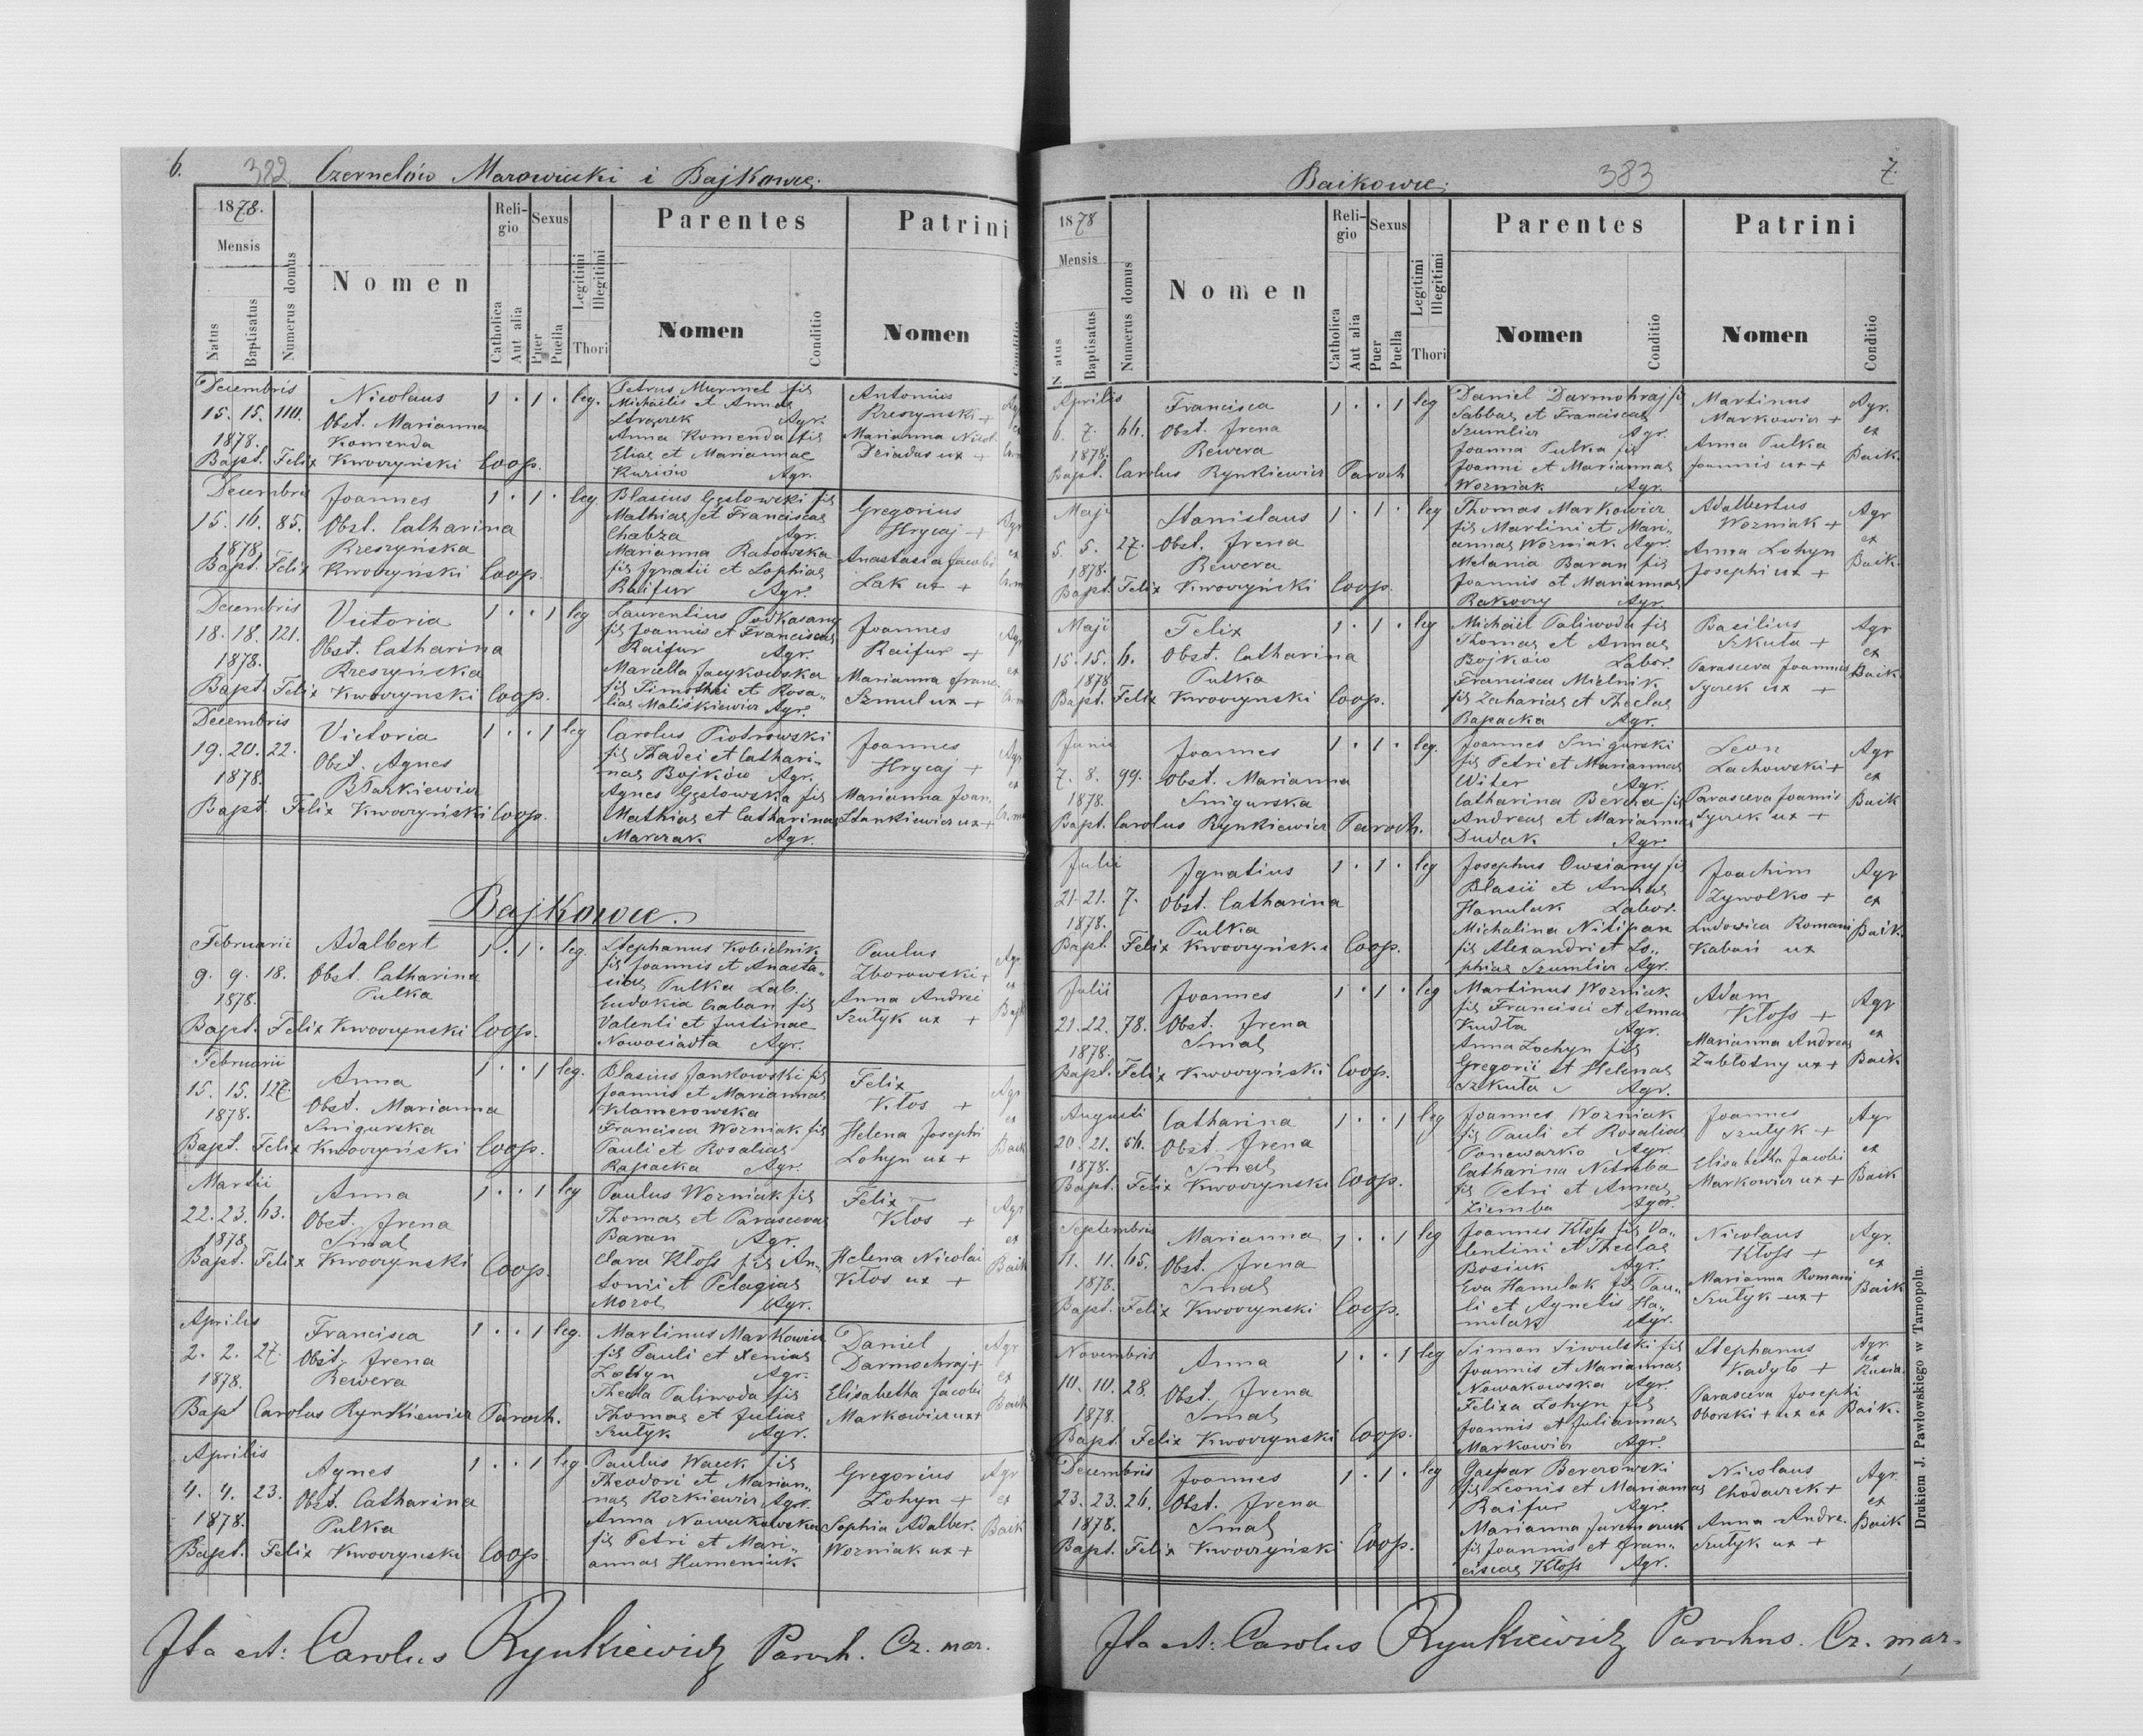 6. 382 Czernelów Mazowiecki i Bajkowce.
1878.
Mensis
Natus
Baptisatus
Numerus domus
Nomen
Religio
Catholica
Aut alia
Sexus
Puer
Puella
Legitimi
Illegitimi
Thori
Parentes
Nomen
Conditio
Patrini
Nomen
Decembris
15. 15. 110.
1878.
Nicolaus
Obst. Marianna
Komenda
Bapt. Felix Kwoczyński Coop.
1 . 1 . leg.
Petrus Murmel fil
Michaelis et Annae
Agr.
Anna Komenda fil
Eliae et Mariannae
Kuziów Agr.
Antonius
Rzeszynski +
Marianna Nicol.
Dziadas ux +
Decembris
15. 16. 85.
1878
Joannes
Obst. Catharina
Rzeszyńska
Bapt. Felix Kwoczyński Coop.
1 . 1 . leg.
Blasius Gęstowski fil
Mathiae et Franciscae
Chabza Agr.
Marianna Ratowska
fil Ignatii et Sophiae
Raifur Agr.
Gregorius
Hrycaj +
Anastasia Jacobi
Lak ux +
Decembris
18. 18. 121.
1878.
Victoria
Obst. Catharina
Rzeszyńska
Bapt. Felix Kwoczynski Coop.
1 . . 1 leg
Laurentius Podkasany
fil Joannis et Franciscae
Raifur Agr.
Mariella Jacykowska
fil Timothei et Rosa-
liae Maliśkiewicz Agr.
Joannes
Raifur +
Marianna Franc.
Szmul ux +
Decembris
19. 20. 22.
1878.
Victoria
Obst. Agnes
Błażkiewicz
Bapt. Felix Kwoczyński Coop.
1 . . 1 leg
Carolus Piotrowski
fil Thadei et Cathari-
nae Bojków Agr.
Agnes Gęstowska fil
Mathiae et Catharinae
Marczak Agr.
Joannes
Hrycaj +
Marianna Joan.
Stankiewicz ux +
Bajkowce.
Februarii
9. 9. 18.
1878.
Adalbert
Obst. Catharina
Pulka
Bapt. Felix Kwoczynski Coop.
1 . 1 . leg.
Stephanus Kobielnik
fil Joannis et Anasta-
siae Pulka Lab.
Eudokia Caban fil
Valenti et Justinae
Nowosiadła Agr.
Paulus
Zborowski +
Anna Andrei
Szutyk ux +
Februarii
15. 15. 127.
1878.
Anna
Obst. Marianna
Snigurska
Bapt. Felix Kwoczyński Coop.
1 . . 1 leg.
Blasius Jankowski fil
Joannis et Mariannae
Klamerowska
Francisca Wozniak fil
Pauli et Rosaliae
Rapacka Agr.
Felix
Kłos +
Helena Josephi
Lohyn ux +
Martii
22. 23. 63.
1878.
Anna
Obst. Irena
Smal
Bapt. Felix Kwoczynski Coop.
1 . . 1 leg
Paulus Wozniak fil
Thomae et Parascevae
Baran Agr.
Clara Kłoss fil An-
tonii et Pelagiae
Moroz Agr.
Felix
Kłos +
Helena Nicolai
Kłos ux +
Aprilis
2. 2. 27.
1878.
Francisca
Obst. Irena
Rewera
Bapt Carolus Rynkiewicz Paroch.
1 . . 1 leg.
Martinus Markowicz
fil Pauli et Xeniae
Lohyn Agr.
Thecla Paliwoda fil
Thomae et Juliae
Szutyk Agr.
Daniel
Darmochraj +
Elisabetha Jacobi
Markowicz ux +
Aprilis
4. 4. 23.
1878.
Agnes
Obst. Catharina
Pulka
Bapt. Felix Kwoczynski Coop
1 . . 1 leg
Paulus Wacek fil
Theodori et Marian-
nae Rozkiewicz Agr.
Anna Nowakowska
fil Petri et Mari-
annae Humeniuk
Gregorius
Lohyn +
Sophia Adalber.
Wozniak ux +
Ita est: Carolus Rynkiewicz Paroch. Cz. maz.
Baikowce. 383 7.
1878
Mensis
Natus
Baptisatus
Numerus domus
Nomen
Religio
Catholica
Aut alia
Sexus
Puer
Puella
Legitimi
Illegitimi
Thori
Parentes
Nomen
Conditio
Patrini
Nomen
Conditio
Aprilis
6. 7. 66.
1878.
Francisca
Obst. Irena
Rewera
Bapt. Carolus Rynkiewicz Paroch
1 . . 1 leg
Daniel Darmohraj fil
Sabbae et Franciscae
Szumlicz Agr.
Joanna Pulka fil
Joanni et Mariannae
Wozniak Agr.
Martinus
Markowicz +
Anna Pulka
Joannis ux +
Agr.
ex
Baik.
Maji
5. 5. 27.
1878.
Stanislaus
Obst. Irena
Rewera
Bapt. Felix Kwoczyński Coop.
1 . 1 . leg
Thomas Markowicz
fil Martini et Mari-
annae Wozniak Agr.
Melania Baran fil
Joannis et Mariannae
Rakoczy Agr.
Adalbertus
Wozniak +
Anna Lohyn
Josephi ux +
Agr
ex
Baik.
Maji
15. 15. 6.
1878
Felix
Obst. Catharina
Pulka
Bapt. Felix Kwoczynski Coop.
1 . 1 . leg
Michael Paliwoda fil
Thomae et Annae
Bojków Labor.
Francisca Mielnik
fil Zachariae et Theclae
Rapacka Agr.
Basilius
Szkuta +
Parasceva Joannis
Syczek ux +
Agr
ex
Baik.
Junii
7. 8. 99.
1878.
Joannes
Obst. Marianna
Snigurska
Bapt. Carolus Rynkiewicz Paroch.
1 . 1 . leg.
Joannes Snigurski
fil Petri et Mariannae
Witer Agr.
Catharina Bercha fil
Andreae et Mariannae
Dudak Agr.
Leon
Lachowski +
Parasceva Joannis
Syczek ux +
Agr
ex
Baik
Julii
21. 21. 7.
1878.
Ignatius
Obst. Catharina
Pulka
Bapt Felix Kwoczyński Coop.
1 . 1 . leg
Josephus Owsiany fil
Blasii et Annae
Hanulak Labor.
Michalina Nitipan
fil Alexandri et So-
phiae Szumlicz Agr.
Joachim
Zywolko +
Ludovica Romani
Kabań ux
Agr
ex
Baik.
Julii
21. 22. 78.
1878.
Joannes
Obst. Irena
Smal
Bapt. Felix Kwoczyński Coop.
1 . 1 . leg
Martinus Wozniak
fil Francisci et Annae
Kudła Agr.
Anna Lochyn fil
Gregorii et Helenae
Szkuta Agr.
Adam
Kłoss +
Marianna Andreae
Zabłotny ux +
Agr
ex
Baik
Augusti
20. 21. 56.
1878.
Catharina
Obst. Irena
Smal
Bapt. Felix Kwoczynski Coop.
1 . . 1 leg
Joannes Wozniak
fil Pauli et Rosaliae
Ponewarko Agr.
Catharina Netreba
fil Petri et Annae
Ziemba Agr.
Joannes
Szutyk +
Elisabetha Jacobi
Markowicz ux +
Agr
ex
Baik
Septembris
11. 11. 65.
1878.
Marianna
Obst. Irena
Smal
Bapt. Felix Kwoczynski Coop.
1 . . 1 leg
Joannes Kłoss fil Va-
lentini et Theclae
Bosiuk Agr.
Eva Hamulak fil Pau-
li et Agnetis Ha-
mulak Agr.
Nicolaus
Kłoss +
Marianna Romani
Szutyk ux +
Agr.
ex
Baik
Novembris
10. 10. 28.
1878.
Anna
Obst. Irena
Smal
Bapt. Felix Kwoczynski Coop.
1 . . 1 leg
Simon Siwulski fil
Joannis et Mariannae
Nowakowska Agr.
Felixa Lohyn fil
Joannis et Juliannae
Markowicz Agr.
Stephanus
Kadyło +
Parasceva Josephi
Oborski + ux ex Baik.
Agr.
ex
Decembris
23. 23. 26.
1878.
Joannes
Obst. Irena
Smal
Bapt. Felix Kwoczyński Coop.
1 . 1 . leg
Gaspar Berezowski
fil Leonis et Mariannae
Raifur Agr.
Marianna Jaremczuk
fil Joannis et Fran-
ciscae Kłoss Agr.
Nicolaus
Chodaczek +
Anna Andre.
Szutyk ux +
Agr.
ex
Baik
Ita est: Carolus Rynkiewicz Parochus. Cz. maz.
Drukiem J. Pawłowskiego w Tarnopolu.